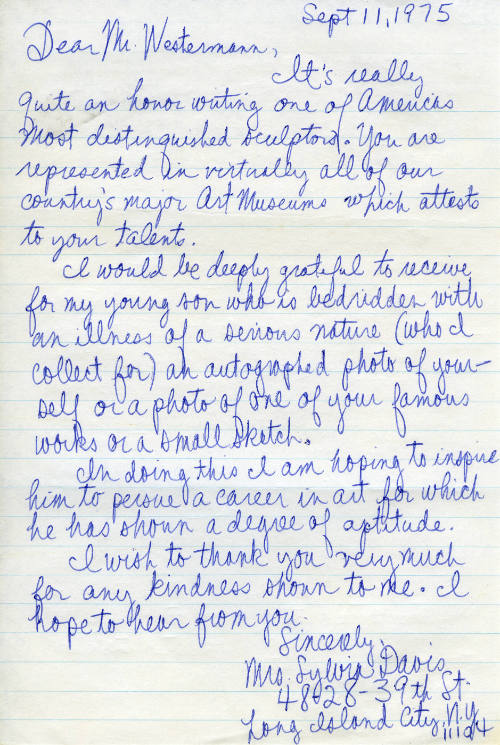 Sept 11, 1975
Dear Mr. Westermann,
It's really
quite an honor writing one of Americas
most distinguished sculptors. You are
represented in virtually all of our
country's major Art Museums which attests
to your talents.
I would be deeply grateful to receive
for my young son who is bedridden with
an illness of a serious nature (who I
collect for) an autographed photo of your-
self or a photo of one of your famous
works or a small sketch.
In doing this I am hoping to inspire
him to persue a career in art for which
he has shown a degree of aptitude.
I wish to thank you very much
for any kindness shown to me. I
hope to hear from you.
Sincerely,
Mrs. Sylvia Davis
48-28-39th St.
Long Island City, N.Y.
11104